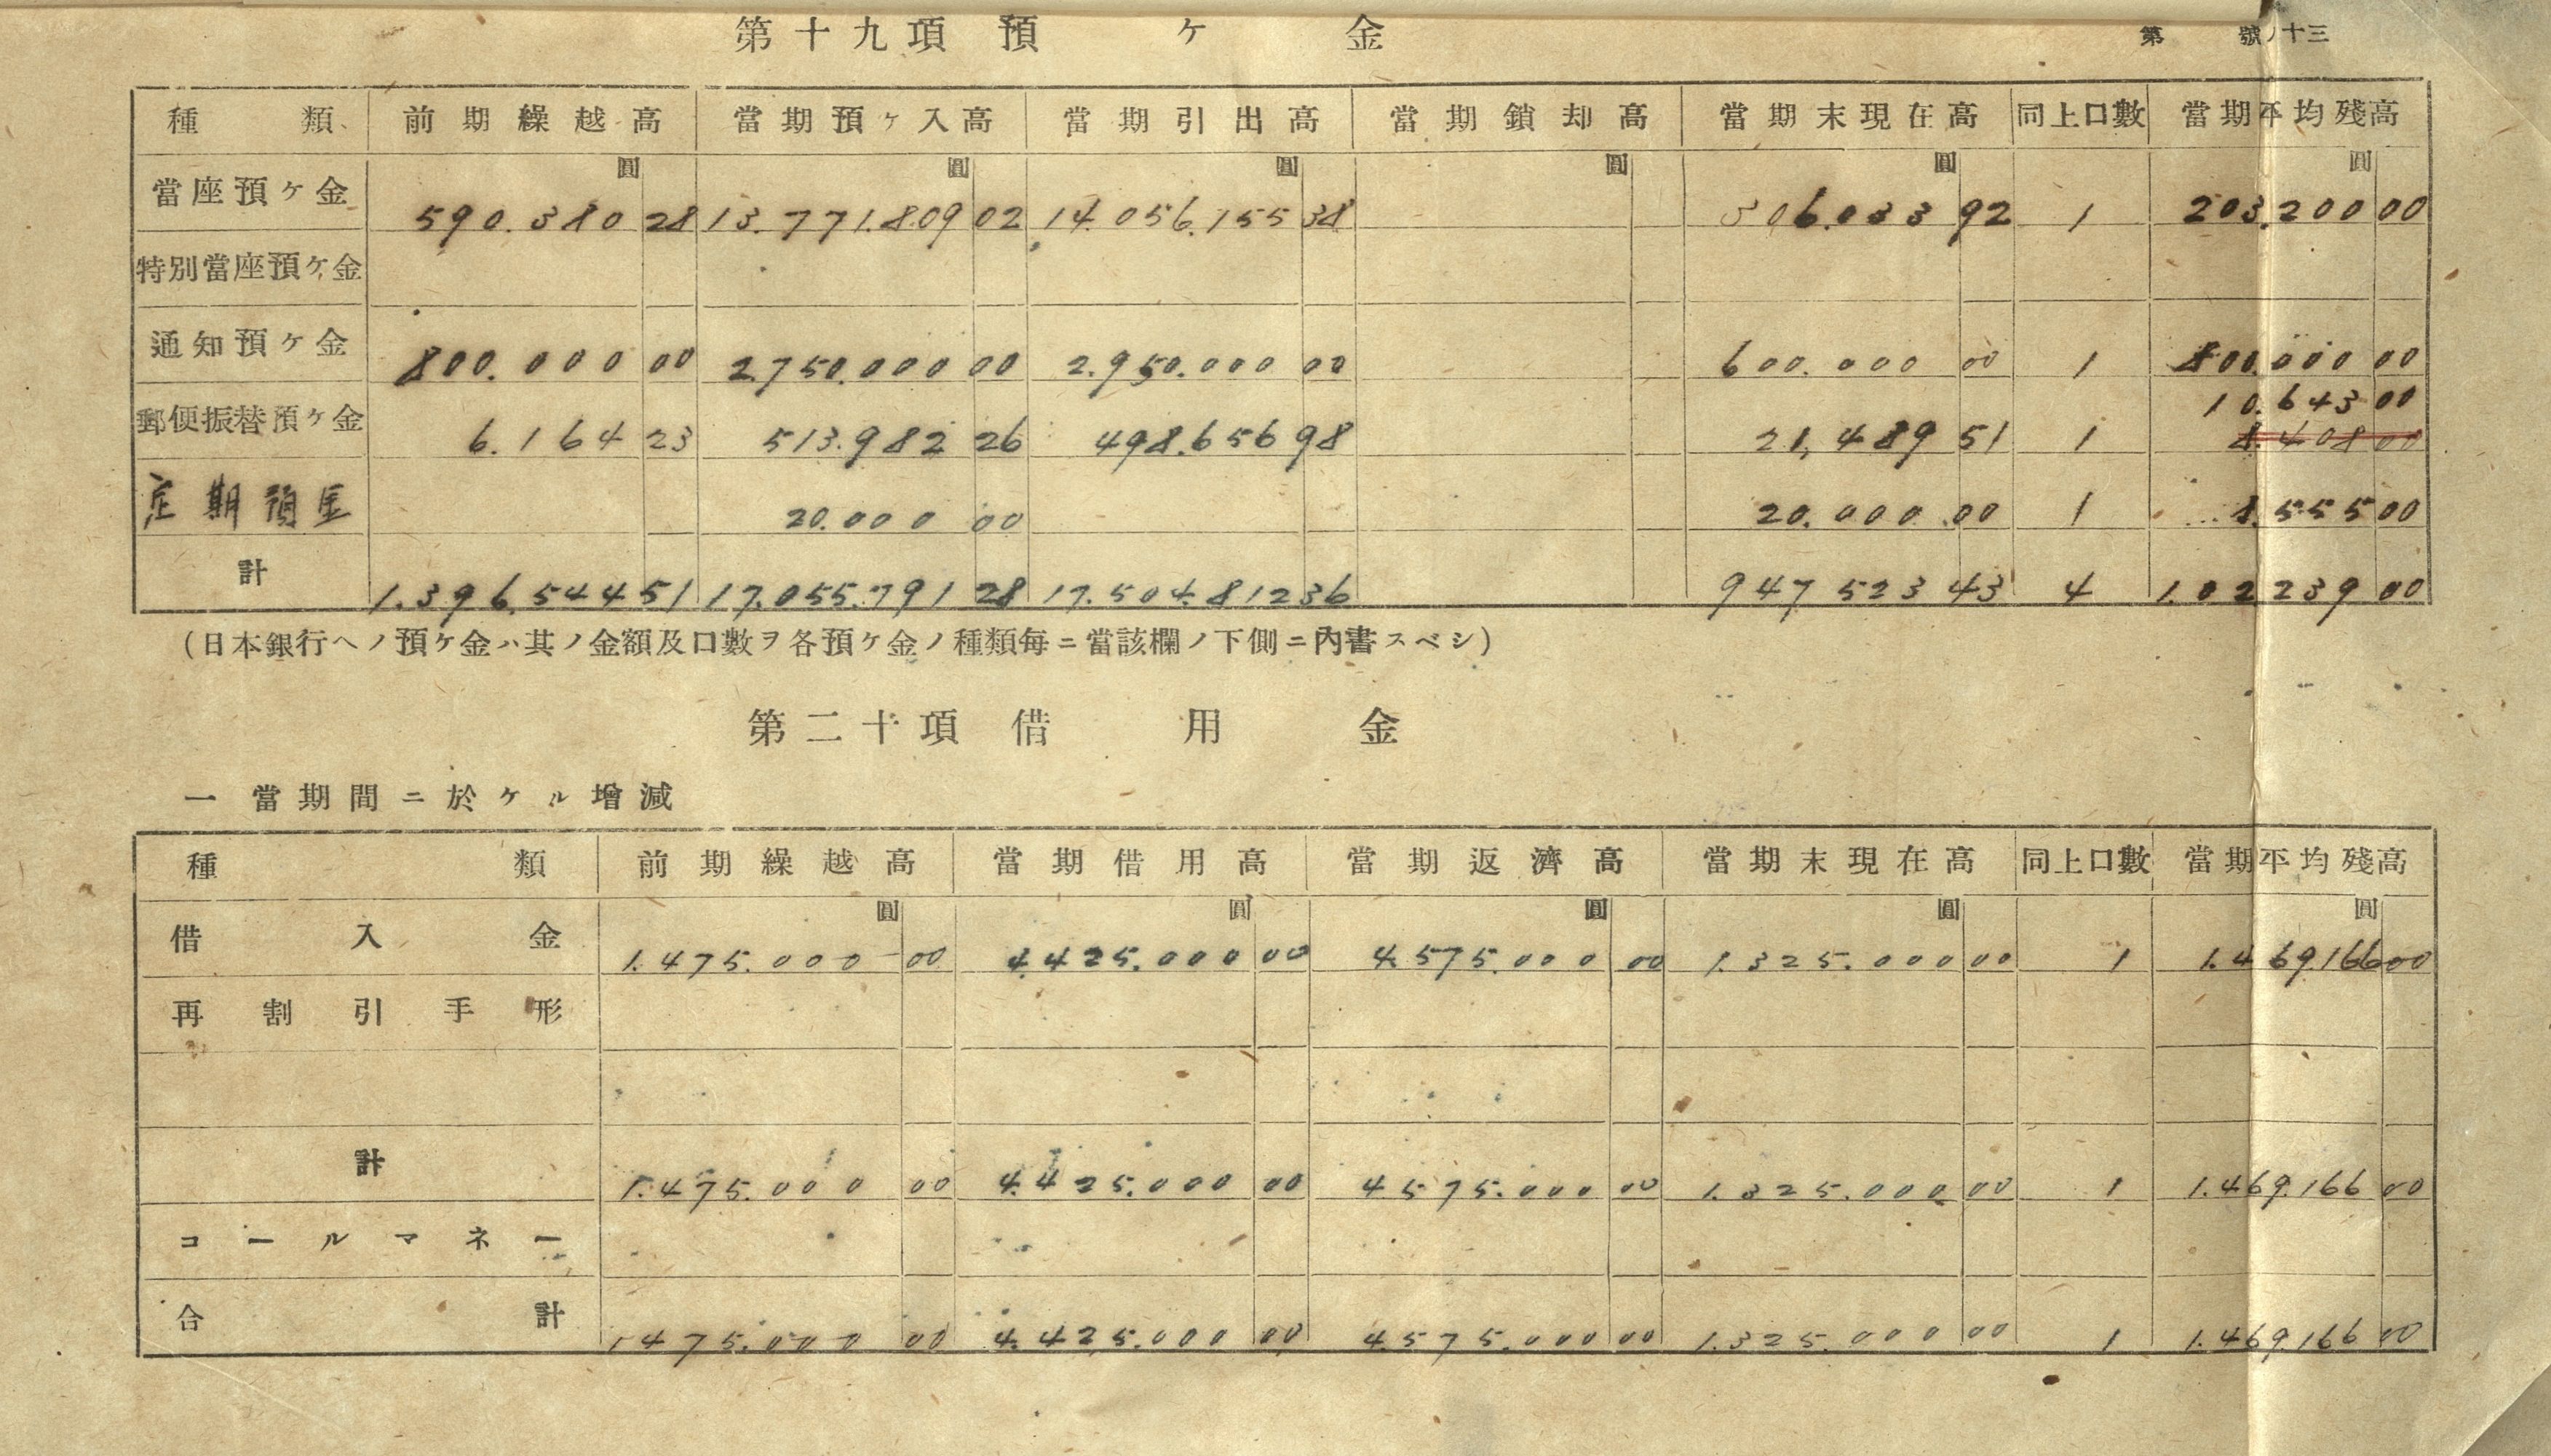 第十九項 預ヶ金
第 號ノ十三
種類 前期繰越高 當期預ヶ入高 當期引出高 當期鎖却高 當期末現在高 同上口數 當期平均殘高
圓 圓 圓 圓 圓 圓
當座預ヶ金 590.380 28 13.771.809 02 14.056.155 38 306.033 92 1 203.200 00
特別當座預ヶ金
通知預ヶ金 800.000 00 2.750.000 00 2.950.000 00 600.000 00 1 800.000 00
10.643 00
郵便振替預ヶ金 6.164 23 513.982 26 498.656 98 21,489 51 1 8.408 00
定期預金 20.000 00 20.000 00 1 8.555 00
計 1.396.544 51 17.055.791 28 17.504.812 36 947 523 43 4 1.022 239 00
(日本銀行ヘノ預ケ金ハ其ノ金額及口數ヲ各預ケ金ノ種類每ニ當該欄ノ下側ニ內書スベシ)
第二十項 借用金
一 當期間ニ於ケル增減
種類 前期繰越高 當期借用高 當期返濟高 當期末現在高 同上口數 當期平均殘高
圓 圓 圓 圓 圓
借入金 1.475.000 00 4.425.000 00 4.575.000 00 1.325.000 00 1 1.469.166 00
再割引手形
計 1.475.000 00 4.425.000 00 4 575.000 00 1.325.000 00 1 1.469.166 00
コールマネー
合計 1 475.000 00 4.425.000 00 4.575.000 00 1.325.000 00 1 1.469.166 00